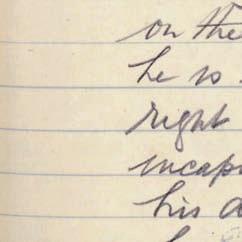 on the
he is
right
incap
his d